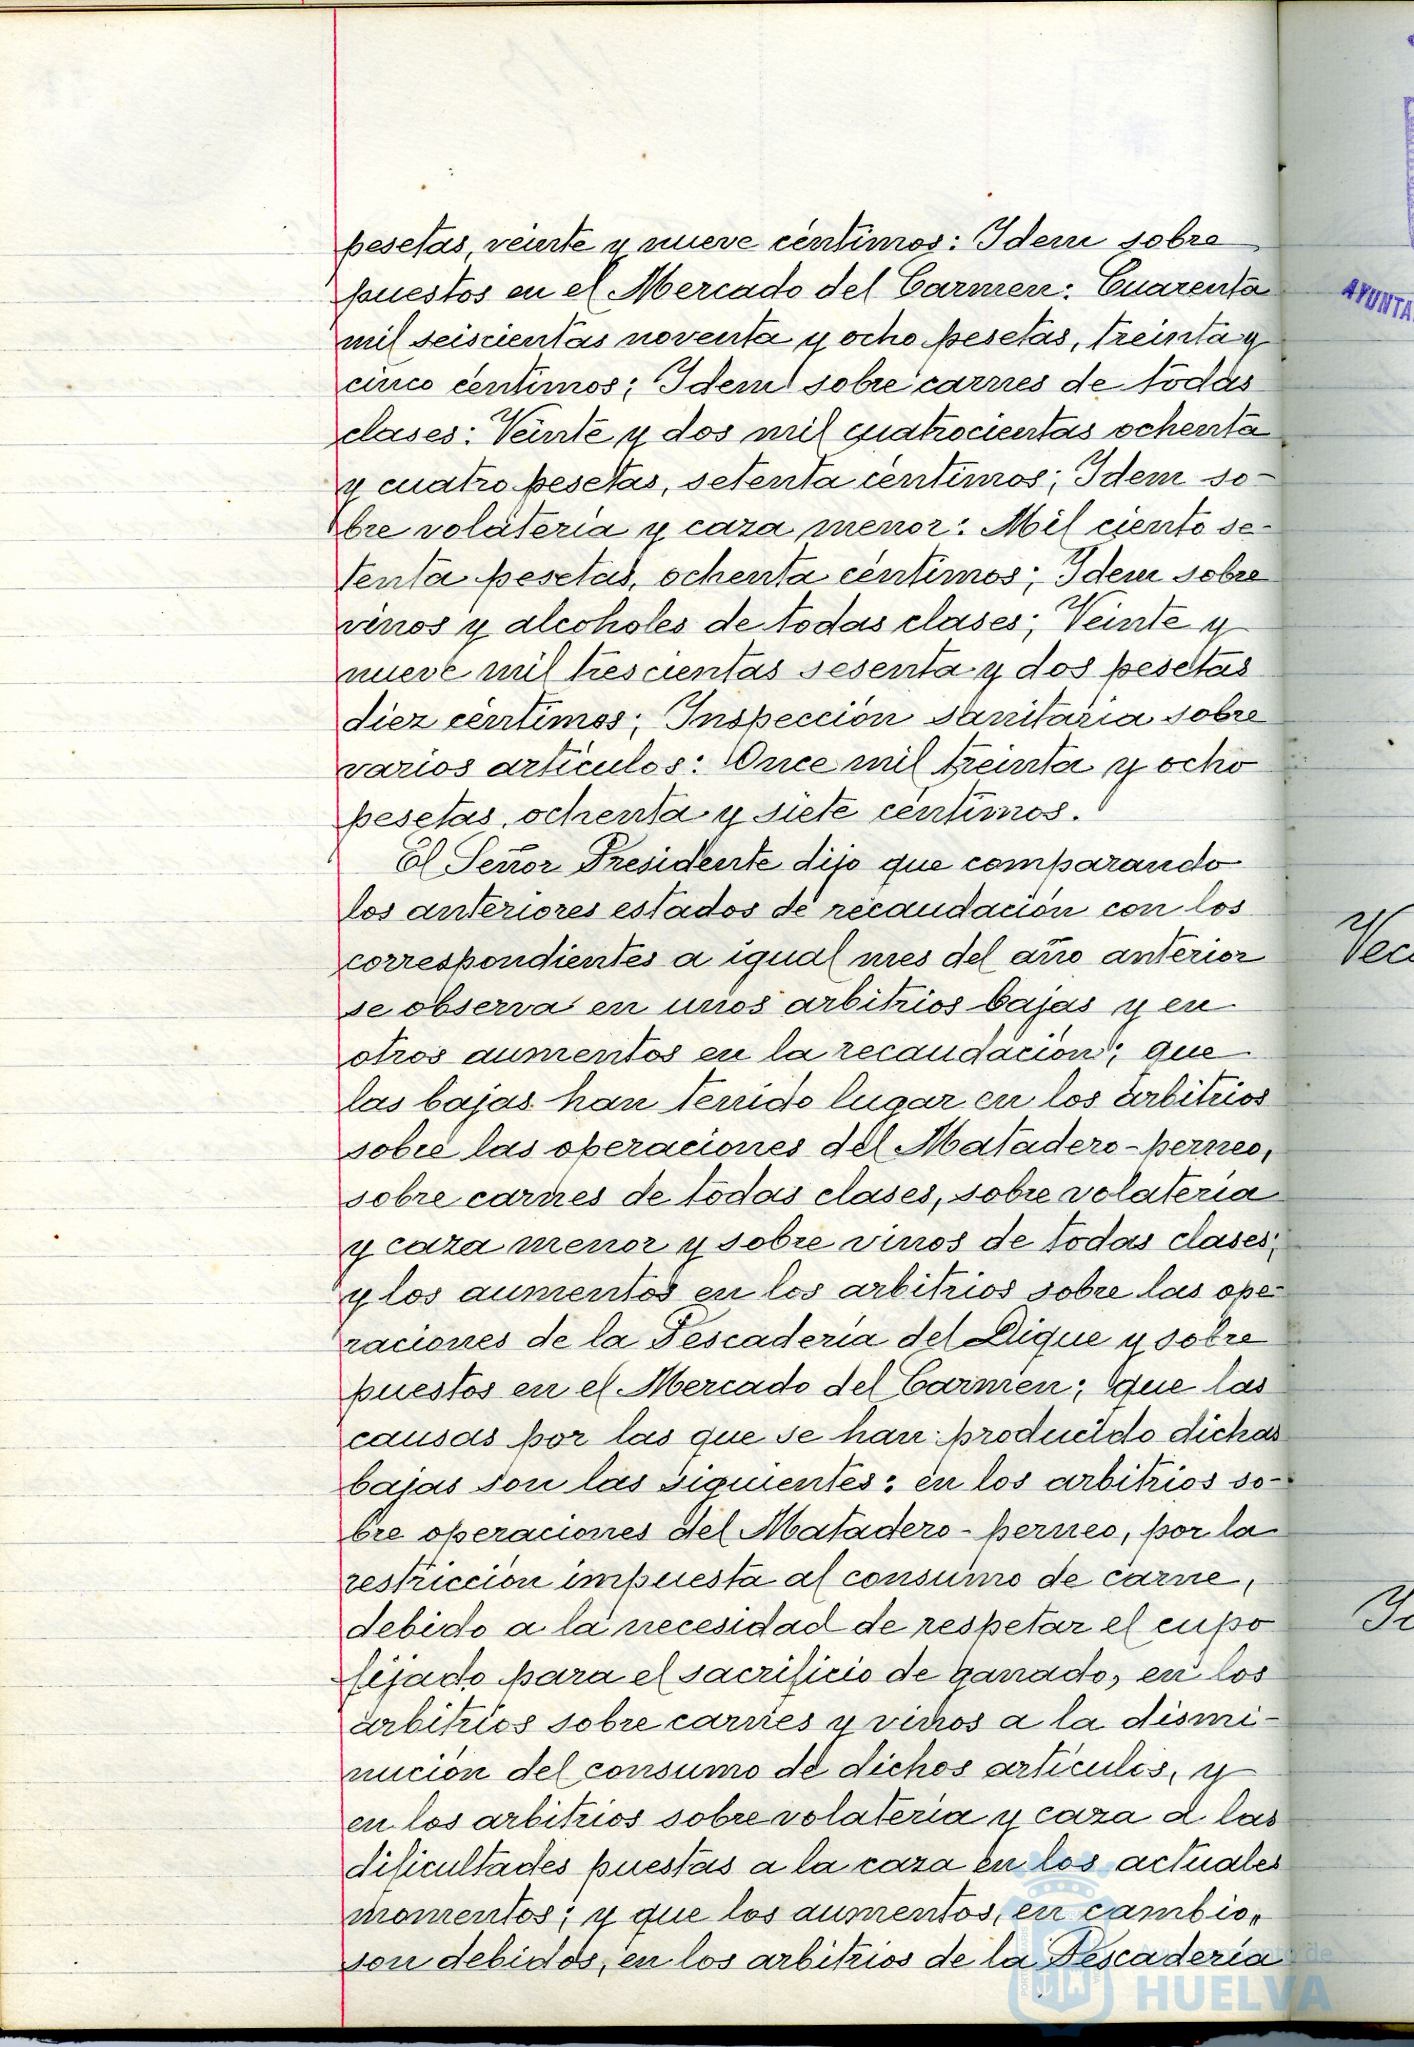 pesetas, veinte y nueve céntimos: Idem sobre
puestos en el Mercado del Carmen: Cuarenta
mil seiscientas noventa y ocho pesetas, treinta y
cinco céntimos; Idem sobre carnes de todas
clases: Veinte y dos mil cuatrocientas ochenta
y cuatro pesetas, setenta céntimos; Idem so-
bre volatería y caza menor: Mil ciento se-
tenta pesetas, ochenta céntimos; Idem sobre
vinos y alcoholes de todas clases; Veinte y
nueve mil trescientas sesenta y dos pesetas
diez céntimos; Inspección sanitaria sobre
varios artículos: Once mil treinta y ocho
pesetas, ochenta y siete céntimos.
El Señor Presidente dijo que comparando
los anteriores estados de recaudación con los
correspondientes a igual mes del año anterior
se observa en unos arbitrios bajas y en
otros aumentos en la recaudación; que
las bajas han tenido lugar en los arbitrios
sobre las operaciones del Matadero-perneo,
sobre carnes de todas clases, sobre volatería
y caza menor y sobre vinos de todas clases;
y los aumentos en los arbitrios sobre las ope-
raciones de la Pescadería del Dique y sobre
puestos en el Mercado del Carmen; que las
causas por las que se han producido dichas
bajas son las siguientes: en los arbitrios so-
bre operaciones del Matadero-perneo, por la
restricción impuesta al consumo de carne,
debido a la necesidad de respetar el cupo
fijado para el sacrificio de ganado, en los
arbitrios sobre carnes y vinos a la dismi-
nución del consumo de dichos artículos, y
en los arbitrios sobre volatería y caza a las
dificultades puestas a la caza en los actuales
momentos; y que los aumentos, en cambio,
son debidos, en los arbitrios de la Pescadería
AYUNTA
Ayuntamiento de
HUELVA